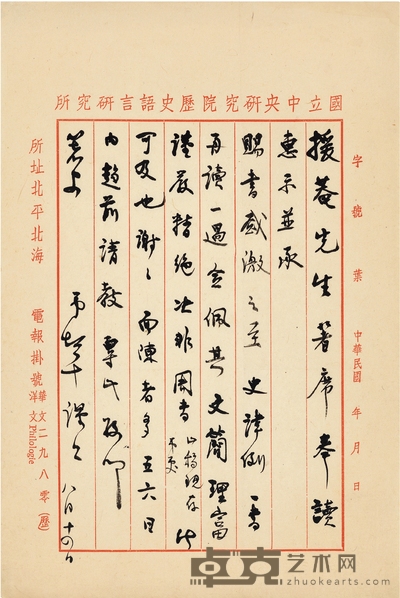 國立中央研究院歷史語言研究所
字 號 葉 中華民國 年 月 日
援菴先生著席奉讀
惠示並承
賜書感激之至史諱例一書
再讀一過 佩其文簡理富
謹嚴精絕決非周書
可及也謝〻面陳者多五六日
內趨前請教專此敬叩
著安 弟斯年謹上 八月十四日
所址北平北海 電報掛號 華文二九八零(歷) 洋文Philologie
卓克艺术网
zhuokearts.com